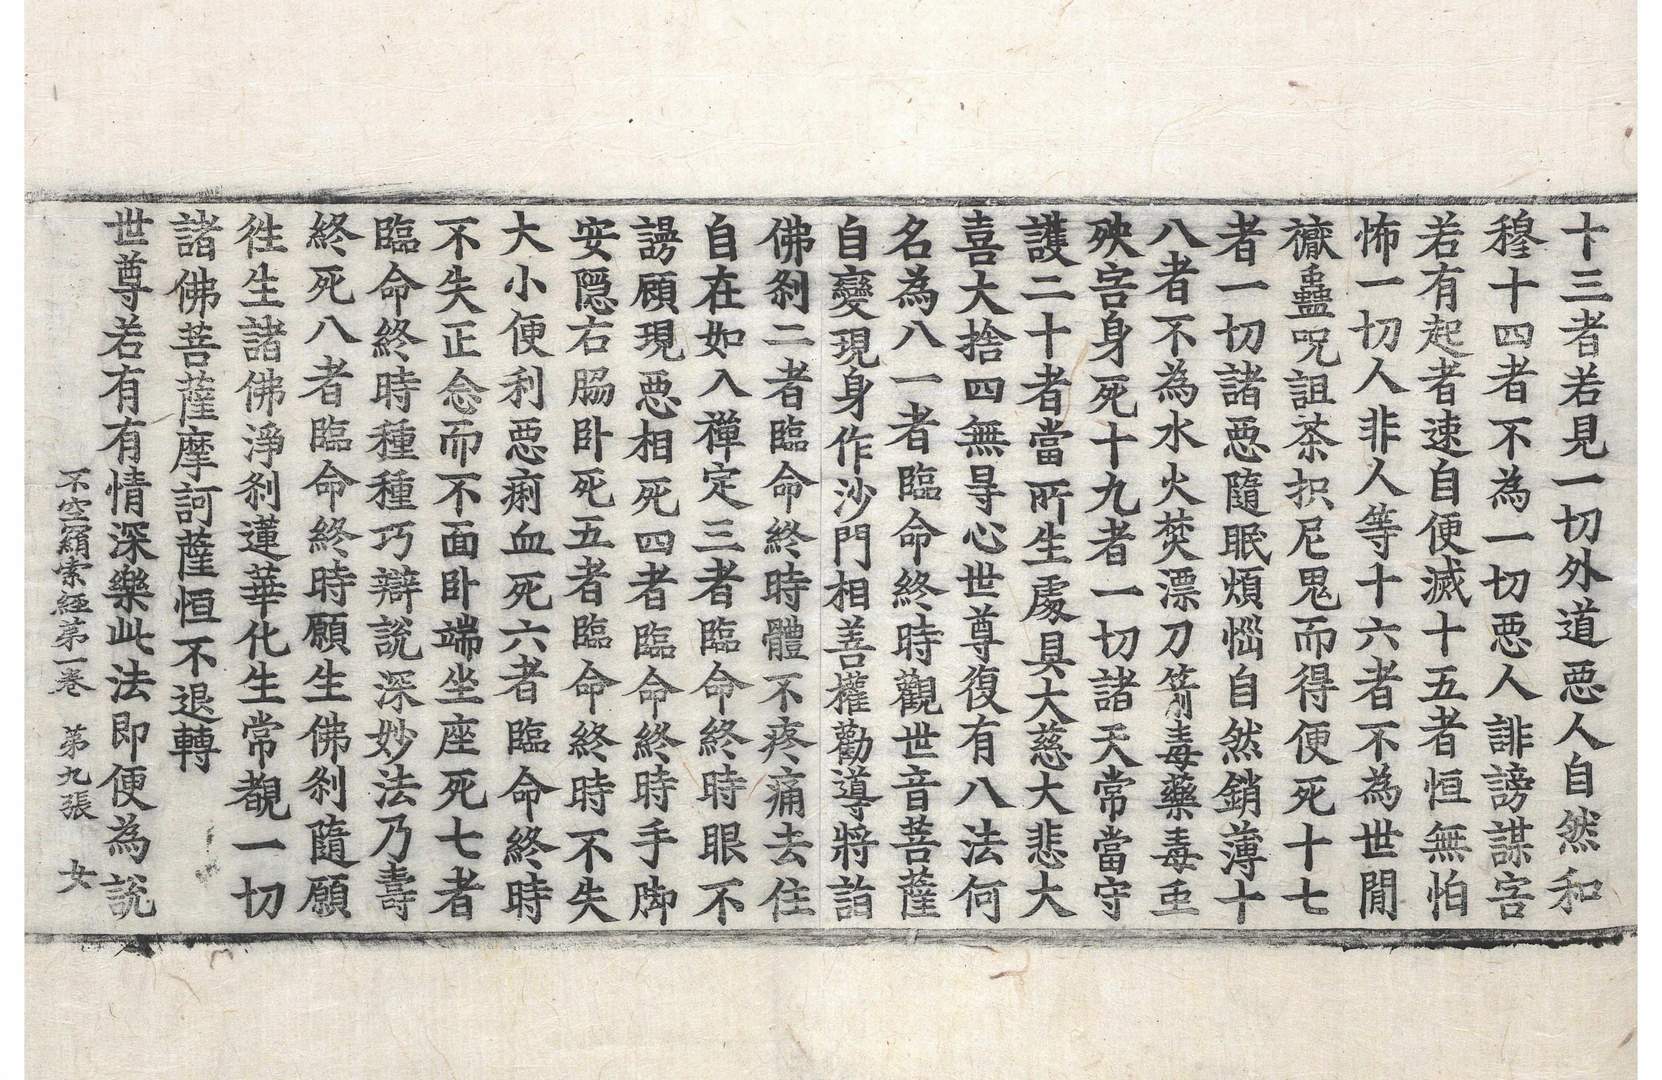 十三者若見一切外道惡人自然和
穆十四者不為一切惡人誹謗謀害
若有起者速自便滅十五者恒無怕
怖一切人非人等十六者不為世閒
蠱呪詛茶抧尼鬼而得便死十七
者一切諸惡隨眠煩惱自然銷薄十
八者不為水火焚漂刀箭毒藥毒䖝
殃害身死十九者一切諸天常當守
護二十者當所生處具大慈大悲大
喜大捨四無㝵心世尊復有八法何
名為八一者臨命終時觀世音菩薩
自變現身作沙門相善權勸導將詣
佛刹二者臨命終時體不疼痛去住
自在如入禪定三者臨命終時眼不
謾顧現惡相死四者臨命終時手脚
安隱右脇卧死五者臨命終時不失
大小便利惡痢血死六者臨命終時
不失正念而不面卧端坐座死七者
臨命終時種種巧辯說深妙法乃壽
終死八者臨命終時願生佛刹隨願
往生諸佛淨刹蓮華化生常覩一切
諸佛菩薩摩訶薩恒不退轉
世尊若有有情深樂此法即便為說
不空羂索經第一卷 第九張 女